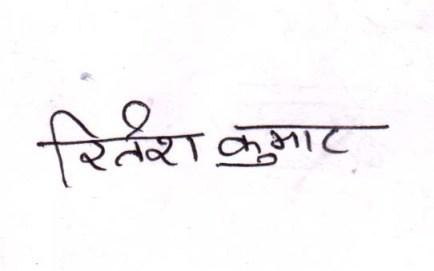 रितेश कुमार